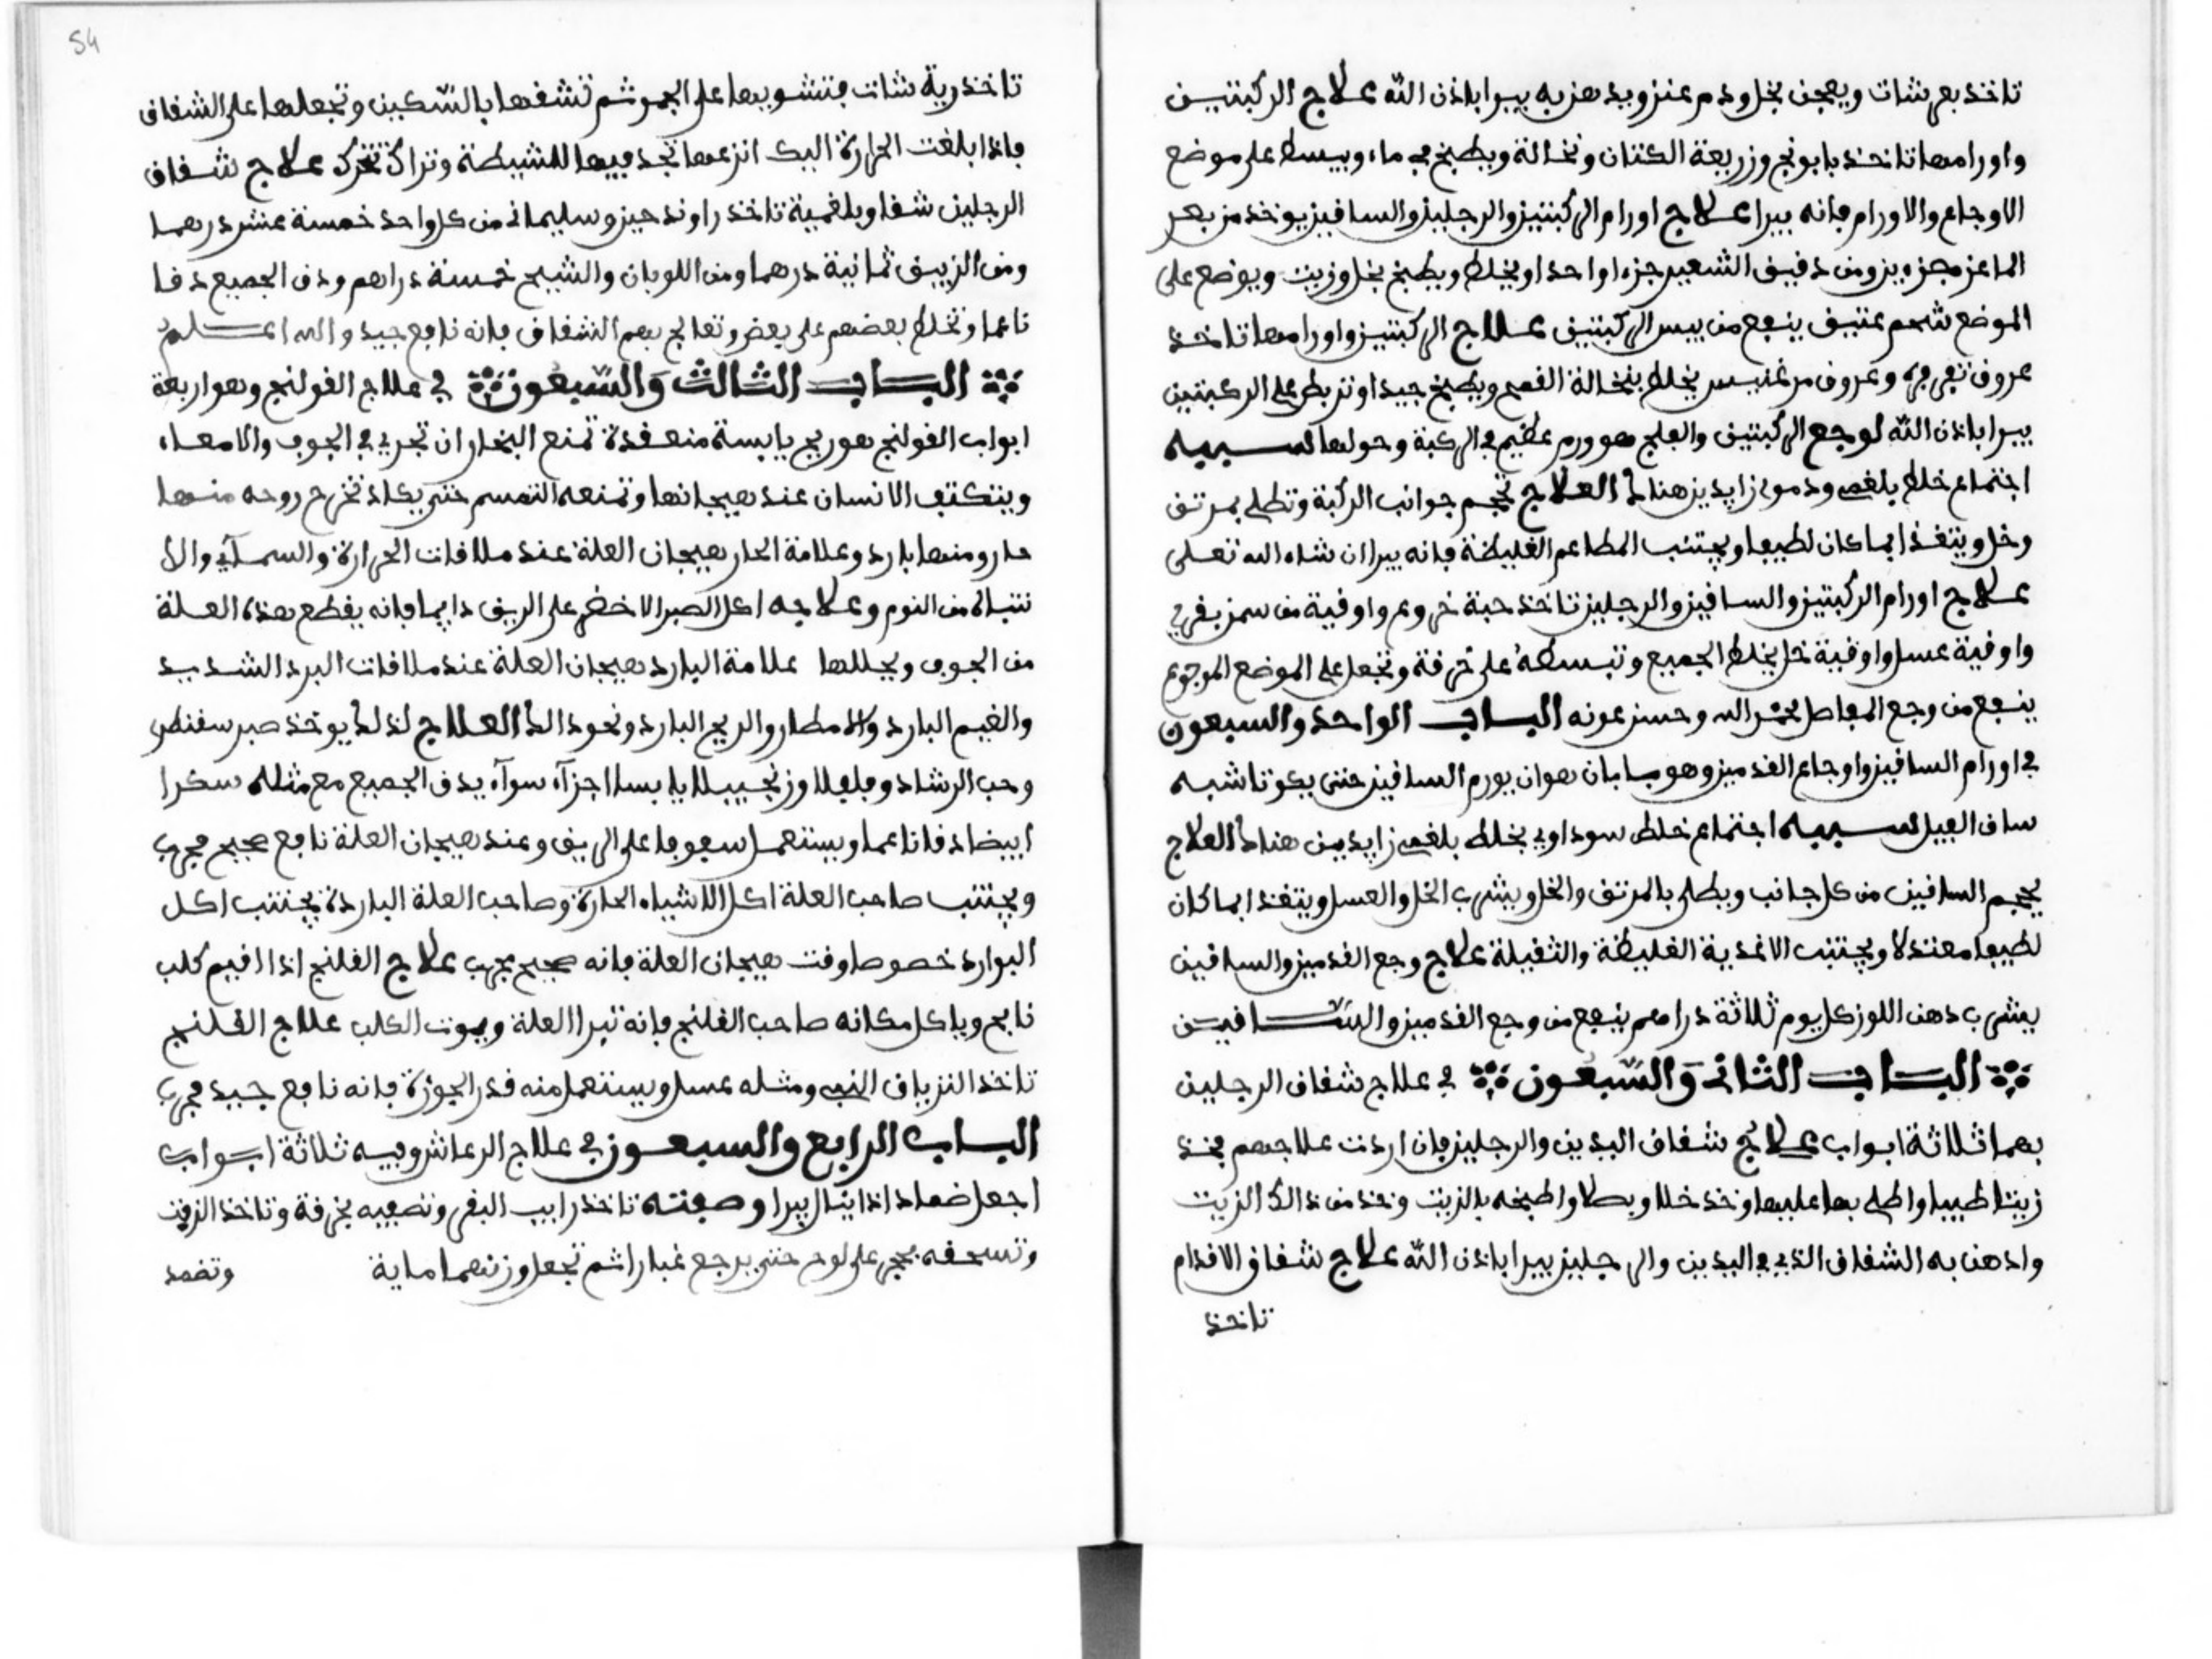 تاخذ بعر شات ويعجن بخل ودم عنز ويدهن به يبرا باذن الله علاج الركبتيـن
واورامها تاخذ بابونج وزريعة الكتان ونخالة ويطبخ في ماء ويبسط على موضع
الاوجاع والاورام فانه يبرا علاج اورام الركبتين والرجلين والساقين يوخذ من بعر
الماعز جزءين ومن دقيق الشعير جزءا واحدا ويخلط ويطبخ بخل وزيت ويوضع على
الموضع شحم عتيق ينفع من يبس الركبتين علاج الركبتين واورامها تاخذ
عروق وعروق يخلط بنخالة القمح ويطبخ جيدا وتربط على الركبتين
يبرا باذن الله لوجع الركبتين والفلج هو ورم عظيم في الركبة وحولها سببه
اجتماع خلط بلغمي ودموي زايدين هناك العلاج تحجم جوانب الركبة وتطلى بمرتق
وخل ويتغذا بما كان لطيفا ويجتنب المطاعم الغليظة فانه يبرا ان شاء الله تعلى
علاج اورام الركبتين والساقين والرجلين تاخذ حبة خروع واوقية من سمن بقري
واوقية عسل واوقية خل يخلط الجميع وتبسطه على خرقة وتجعل على الموضع الموجوع
ينفع من وجع المفاصل بحمد الله وحسن عونه البـاب الواحد والسبعون
في اورام الساقين واوجاع القدمين وهو بابان هو ان يورم الساقين حتى يكوتا شبه
ساق الفيل سببه اجتماع خلط سوداوي بخلط بلغمي زايدين هناك العلاج
يحجم الساقين من كل جانب ويطلى بالمرتق والخل ويشرب الخل والعسل ويتغذا بما كان
لطيفا معتدلا ويجتنب الاغذية الغليظة والثقيلة علاج وجع القدمين والساقين
يشرب دهن اللوز كل يوم ثلاثة دراهم ينفع من وجع القدمين والساقين
البـاب الثاني والسبعون في علاج شقاق الرجلين
بهما ثلاثة ابواب علاج شقاق اليدين والرجلين فان اردت علاجهم فخذ
زيتا طيبا واطلي بها عليها وخذ خلا وبصلا واطبخه بالزيت وخذ من ذالك الزيت
وادهن به الشقاق الذي في اليدين والرجلين يبرا باذن الله علاج شقاق الاقدام
تاخذ
تاخذ رية شات فتشويها على الجمر ثم تشقها بالسكين وتجعلها على الشقاق
فاذا بلغت الحرارة اليك انزعها تجد فيها للشيطنة وتراك تتحرك علاج شقاق
الرجلين شقا وبلغمية تاخذ راوند حيز وسليماني من كل واحد خمسة عشر درهما
ومن الزيبق ثمانية درهما ومن اللوبان والشيح خمسة دراهم ودق الجميع دقا
ناعما وتخلط بعضهم على بعض وتعالج بهم الشقاق فانه نافع جيد والله اعلم
البـاب الثالث والسبعون في علاج القولنج وهو اربعة
ابواب القولنج هو ريح يابسة منعقدة تمنع البخار ان تجري في الجوف والامعاء
ويتكتف الانسان عند هيجانها وتمنعه التنفس حتى يكاد تخرج روحه منها
حار ومنها بارد وعلامة الحار هيجان العلة عند ملاقات الحرارة والسمائم والا
نتباه من النوم وعلاجه اكل الصبر الاخضر على الريق دايما فانه يقطع هذه العلة
من الجوف ويحللها علامة البارد هيجان العلة عند ملاقات البرد الشديد
والغيم البارد والامطار والريح البارد ونحو ذالك العلاج لذلك يوخذ صبر سقطري
وحب الرشاد وفلفلا وزنجبيلا يابسا اجزآء سوآء يدق الجميع مع مثله سكرا
ابيضا دقا ناعما ويستعمل سعوفا على الريق وعند هيجان العلة نافع صحيح مجرب
ويجتنب صاحب العلة اكل الاشياء الحارة وصاحب العلة الباردة يجتنب اكل
البوارد خصوصا وقت هيجان العلة فانه صحيح مجرب علاج القلنج اذا اقيم كلب
نايم وياكل مكانه صاحب القلنج فانه تبرا العلة ويموت الكلب علاج القلنج
تاخذ الترياق النبي ومثله عسل ويستعمل منه قدر الجوزة فانه نافع جيد مجرب
البـاب الرابع والسبعون في علاج الرعاش وفيه ثلاثة ابواب
اجعل ضماد اذا يبرا وصفته تاخذ رايب البقر وتصفيه بخرقة وتاخذ الزفت
وتسحقه بحجر على لوح حتى يرجع غبارا ثم تجعل وزنهما ماية وتضمد
54